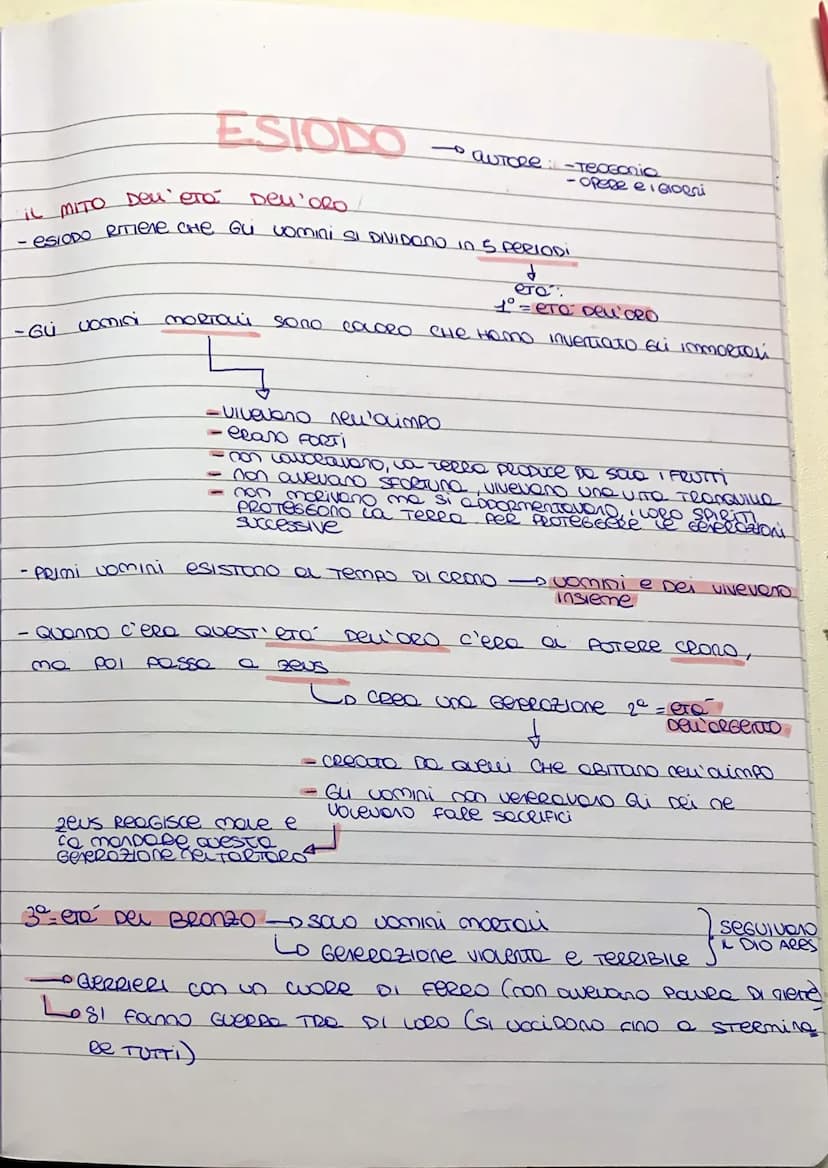 ESIODO → AUTORE: - TEOGONIA
- OPERE E I GIORNI
IL MITO DELL'ETÀ DELL'ORO
- ESIODO RITIENE CHE GLI UOMINI SI DIVIDANO IN 5 PERIODI
↓
ETÀ:
1° = ETÀ DELL'ORO
- GLI UOMINI MORTALI SONO COLORO CHE HANNO INVENTATO GLI IMMORTALI
- VIVEVANO NELL'OLIMPO
- ERANO FORTI
- NON LAVORAVANO, LA TERRA PRODUCE DA SOLA I FRUTTI
- NON AVEVANO SFORTUNA, VIVEVANO UNA VITA TRANQUILLA
- NON MORIVANO MA SI ADDORMENTAVANO, I LORO SPIRITI
PROTEGGONO LA TERRA PER PROTEGGERE LE GENERAZIONI
SUCCESSIVE
- PRIMI UOMINI ESISTONO AL TEMPO DI CRONO → UOMINI E DEI VIVEVANO
INSIEME
- QUANDO C'ERA QUEST'ETÀ DELL'ORO C'ERA AL POTERE CRONO,
MA POI PASSA A ZEUS
↳ CREA UNA GENERAZIONE 2ª = ETÀ
DELL'ARGENTO
↓
- CREATA DA QUELLI CHE ABITANO NELL'OLIMPO
- GLI UOMINI NON VENERAVANO GLI DEI NE
VOLEVANO FARE SACRIFICI
ZEUS REAGISCE MALE E
FA MANDARE QUESTA
GENERAZIONE NEL TARTARO
3ª = ETÀ DEL BRONZO → SOLO UOMINI MORTALI
↳ GENERAZIONE VIOLENTA E TERRIBILE } SEGUIVANO
IL DIO ARES
→ GERRIERI CON UN CUORE DI FERRO (NON AVEVANO PAURA DI NIENTE)
↳ SI FANNO GUERRA TRA DI LORO (SI UCCIDONO FINO A STERMINA
RE TUTTI)